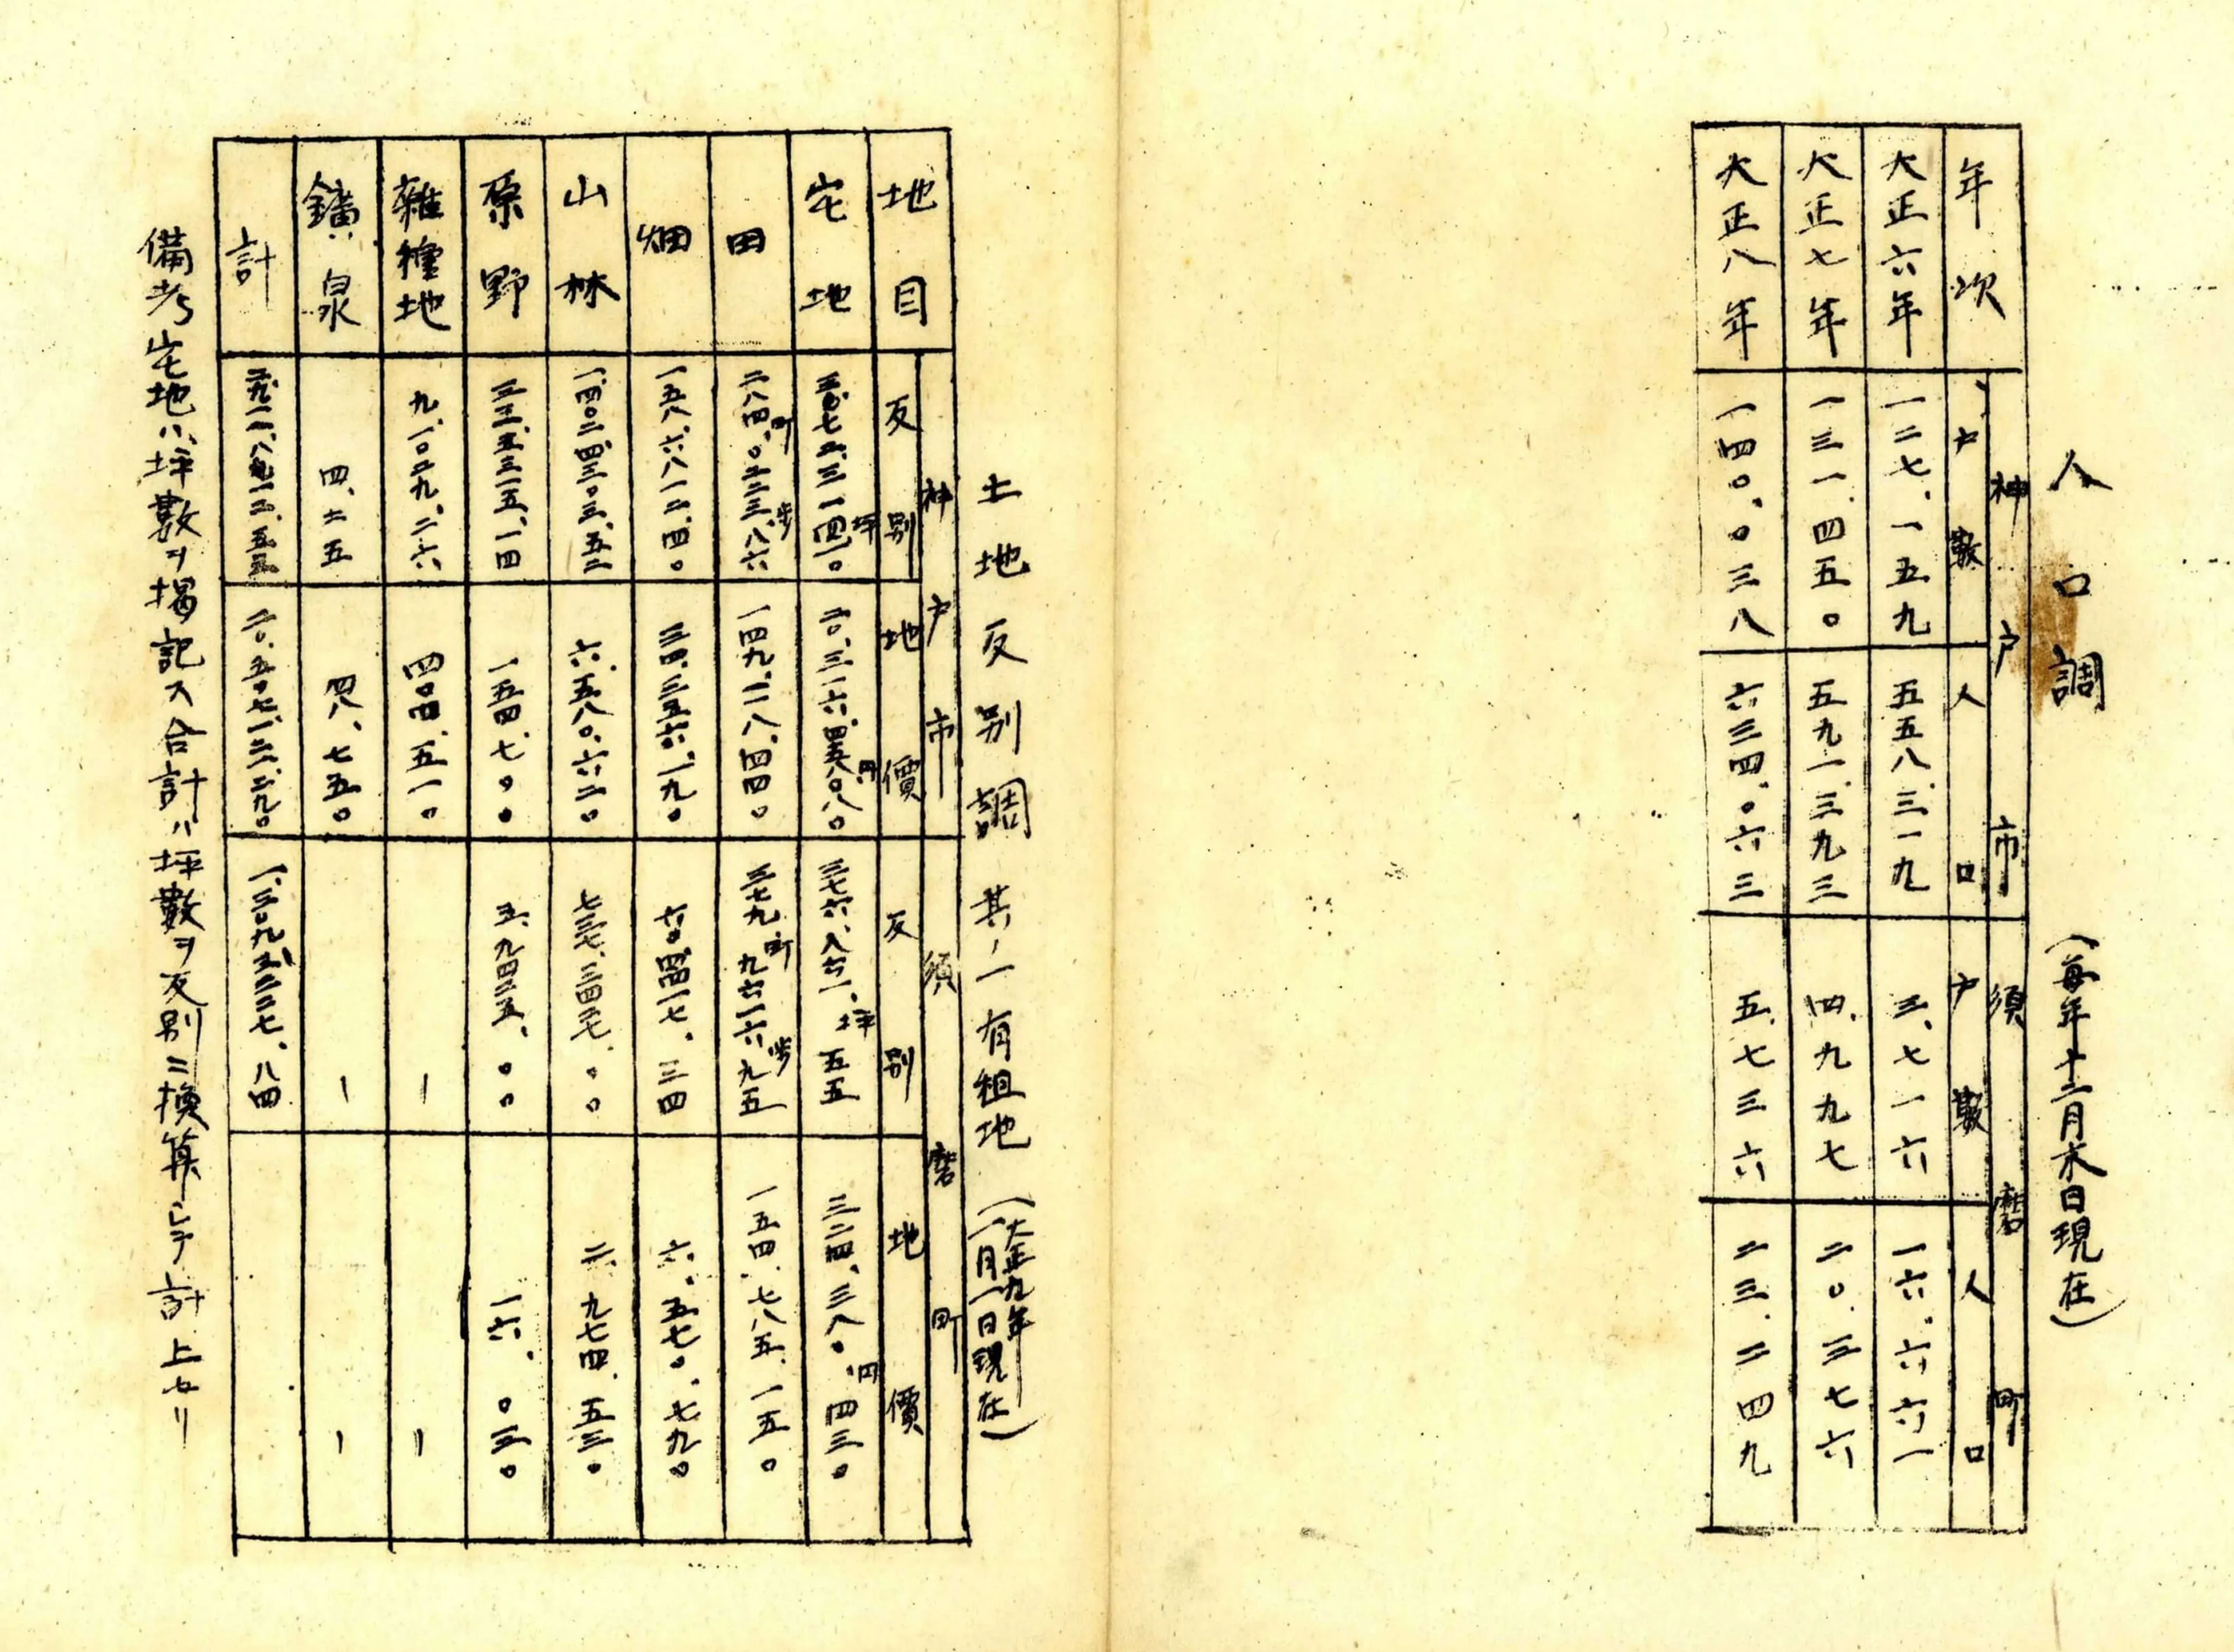 人口調 (每年十二月末日現在)
年次 神戸市 須磨町
戸數 人口 戸數 人口
大正六年 一二七、一五九 五五八、三一九 三、七一六 一六、六六一
大正七年 一三一、四五〇 五九一、三九三 四、九九七 二〇、三七六
大正八年 一四〇、〇三八 六三四、〇六三 五、七三六 二三、二四九
土地反別調 其ノ一有租地 (大正九年一月一日現在)
地目 神戸市 須磨町
反別 地價 反別 地價
宅地 坪 円 三七六、八六一、坪五五 三二四、三八〇、円四三〇
田 町 歩 一四九、二一八、四四〇 三七九町九六一六歩九五 一五四、七八五、一五〇
畑 一五八、六八一二、四〇 三四、三五六、一九〇 六〇、四四一七、三四 六、五七〇、七九〇
山林 一、四〇二、四三〇三、五二 六、五八〇、六二〇 七三七、三四三七、〇〇 二、九七四、五三〇
原野 三三、五三一五、一四 一五四、七〇〇 五、九四三五、〇〇 一六、〇三〇
雜種地 九、一〇二九、二六 四〇四、五一〇 ー ー
鑛泉 四、二五 四八、七五〇 ー ー
計
備考宅地ハ坪數ヲ揭記ス合計ハ坪數ヲ反別ニ換算シテ計上セリ